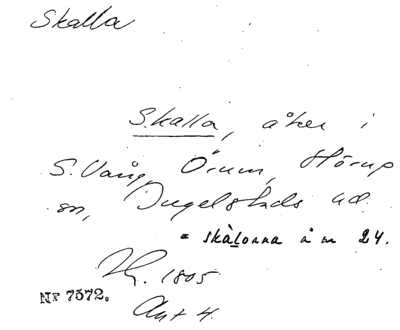 Skalla
Skalla, åker i
S. Vång, Örum, Hörup
sn, Ingelstads hd.
= skàlorna å n 24.
1805
NF 7572.
Akt 4.